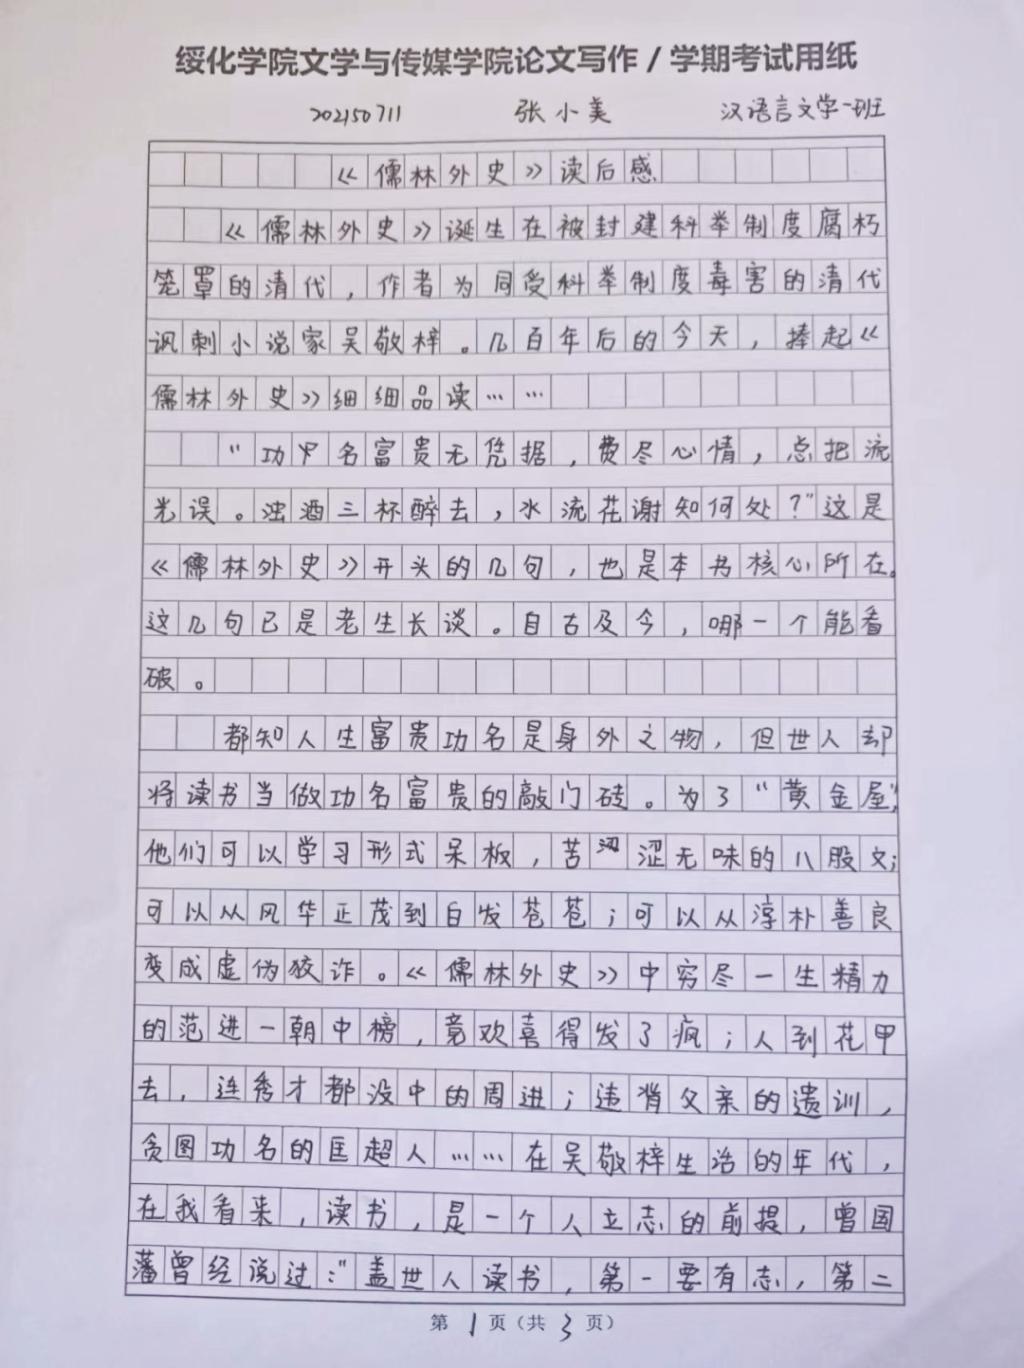 绥化学院文学与传媒学院论文写作 / 学期考试用纸
202150711 张小美 汉语言文学一班
《儒林外史》读后感
《儒林外史》诞生在被封建科举制度腐朽
笼罩的清代，作者为同受科举制度毒害的清代
讽刺小说家吴敬梓。几百年后的今天，捧起《
儒林外史》细细品读……
“功名富贵无凭据，费尽心情，总把流
光误。浊酒三杯醉去，水流花谢知何处？”这是
《儒林外史》开头的几句，也是本书核心所在。
这几句已是老生长谈。自古及今，哪一个能看
破。
都知人生富贵功名是身外之物，但世人却
将读书当做功名富贵的敲门砖。为了“黄金屋”，
他们可以学习形式呆板，苦涩无味的八股文；
可以从风华正茂到白发苍苍；可以从淳朴善良
变成虚伪狡诈。《儒林外史》中穷尽一生精力
的范进一朝中榜，竟欢喜得发了疯；人到花甲
去，连秀才都没中的周进；违背父亲的遗训，
贪图功名的匡超人……在吴敬梓生活的年代，
在我看来，读书，是一个人立志的前提，曾国
藩曾经说过：“盖世人读书，第一要有志，第二
第 1 页（共 3 页）